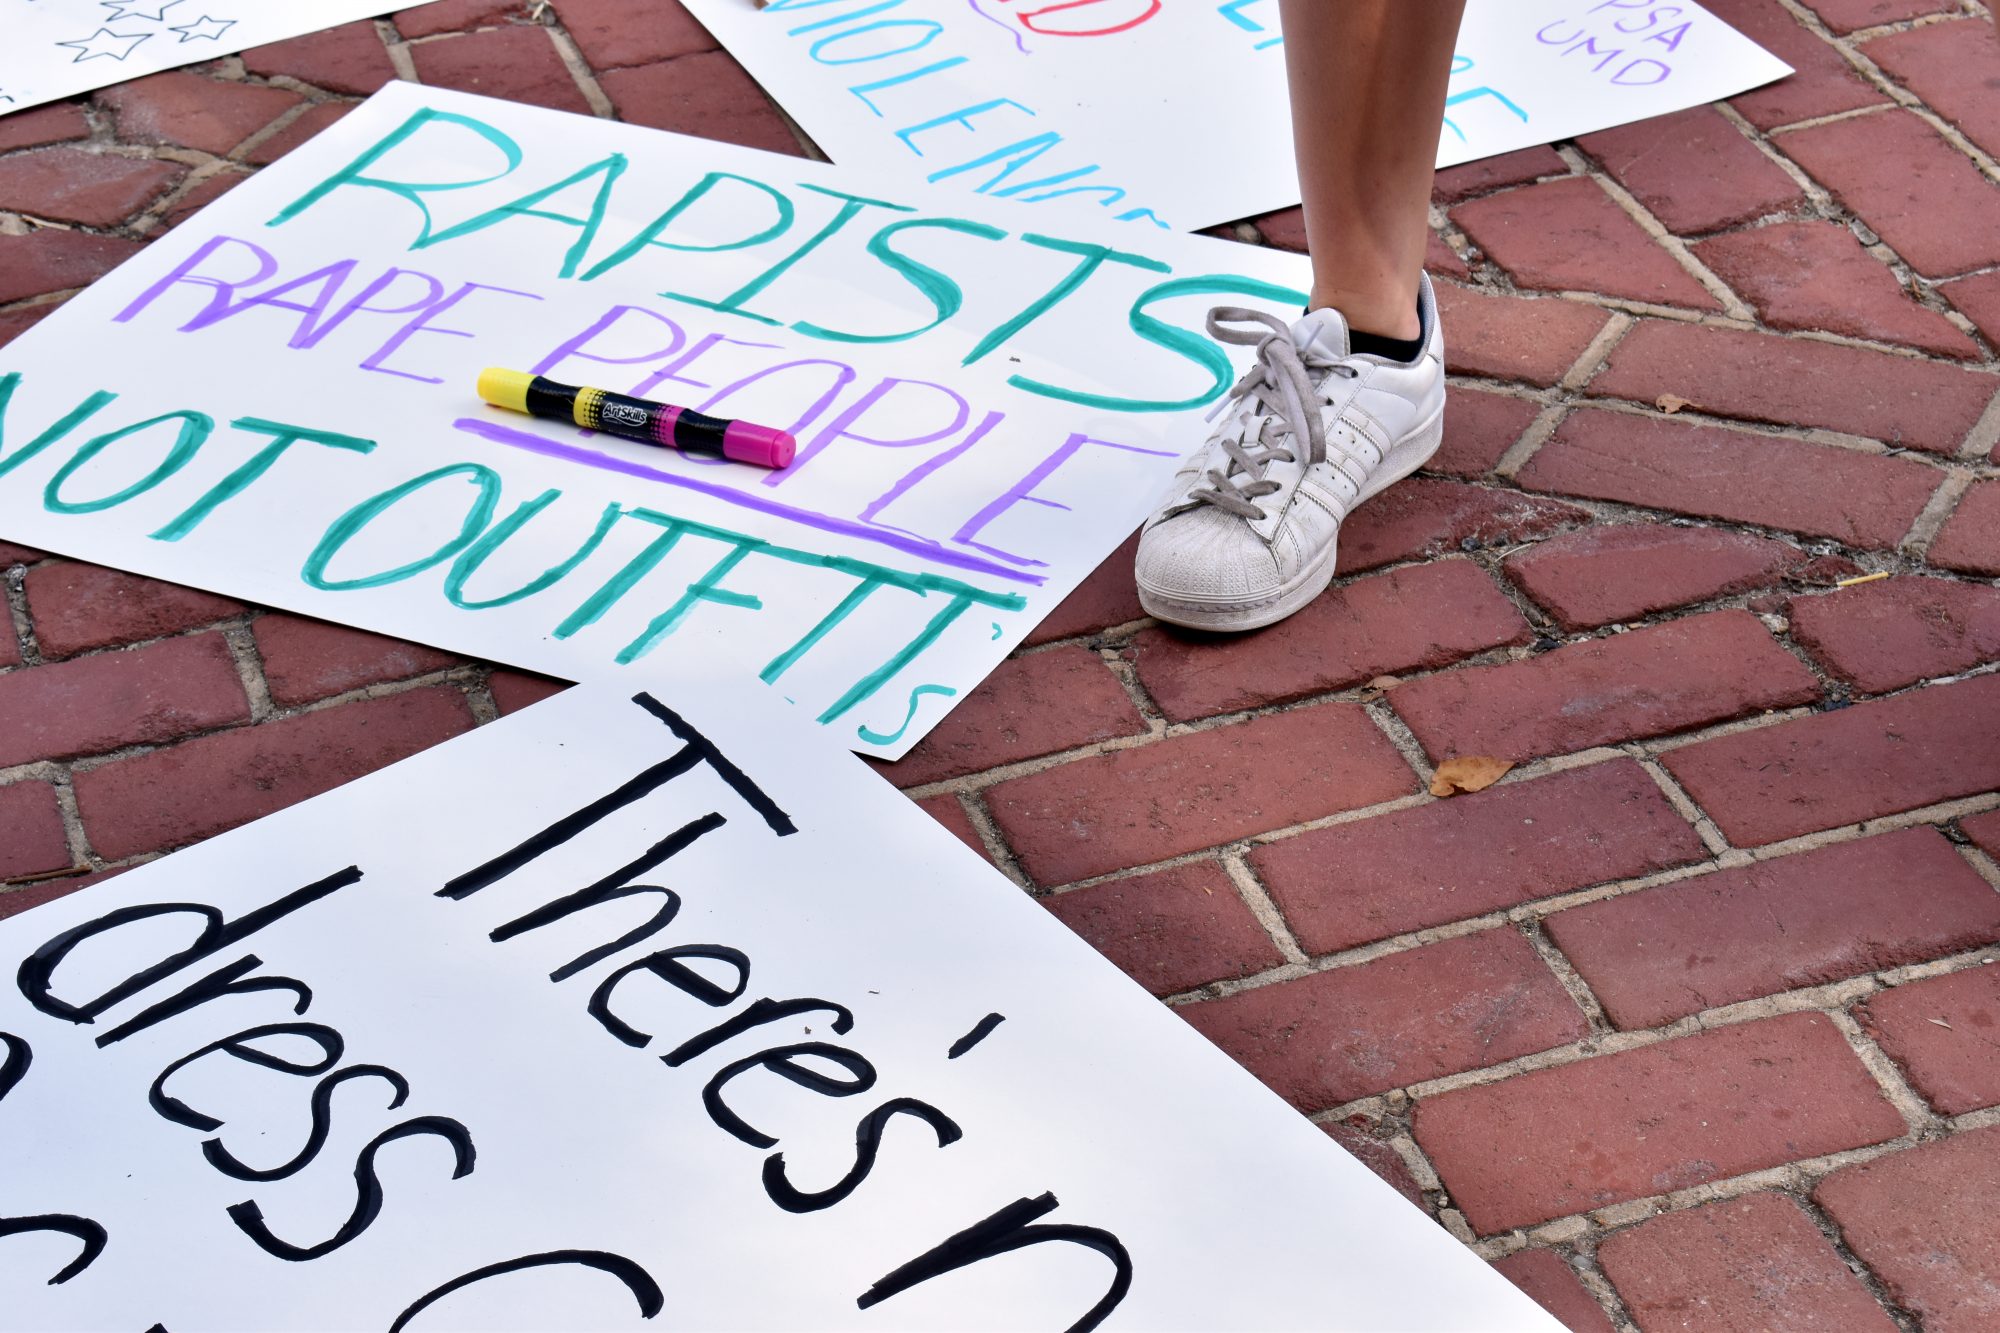 PSA
UMD
RAPISTS
RAPE PEOPLE
NOT OUTFITT's
ArtSkills
There's n
dress c